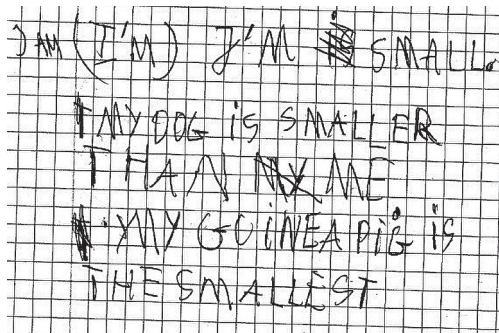 I AM (I'M) I'M SMALL.
MY DOG iS SMALLER
THAN ME
MY GUiNEA PiG iS
THE SMALLEST